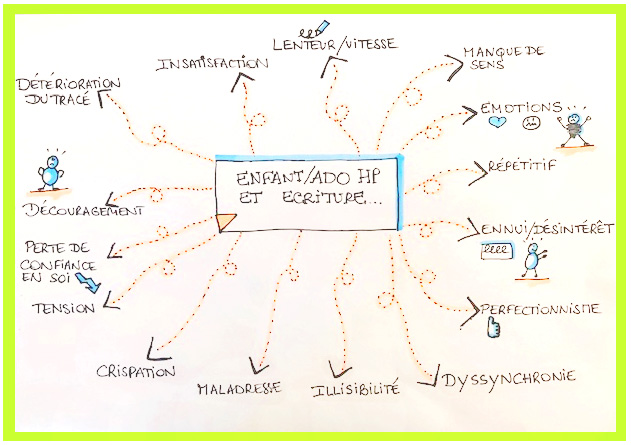 ENFANT/ADO HP
ET ECRITURE...
LENTEUR/VITESSE
MANQUE DE
SENS
EMOTIONS
RÉPÉTITIF
ENNUI/DÉSINTÉRÊT
PERFECTIONNISTE
DYSSYNCHRONIE
ILLISIBILITÉ
MALADRESSE
CRISPATION
TENSION
PERTE DE
CONFIANCE
EN SOI
DÉCOURAGEMENT
DÉTÉRIORATION
DU TRACÉ
INSATISFACTION